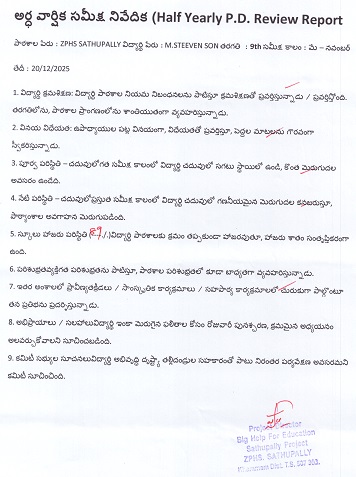 అర్ధ వార్షిక సమీక్ష నివేదిక (Half Yearly P.D. Review Report
పాఠశాల పేరు : ZPHS SATHUPALLY విద్యార్థి పేరు : M.STEEVEN SON తరగతి : 9th సమీక్ష కాలం : మే – నవంబర్
తేదీ : 20/12/2025
1. విద్యార్థి క్రమశిక్షణ: విద్యార్థి పాఠశాల నియమ నిబంధనలను పాటిస్తూ క్రమశిక్షణతో ప్రవర్తిస్తున్నాడు / ప్రవర్తిస్తోంది.
తరగతిలోను, పాఠశాల ప్రాంగణంలోను శాంతియుతంగా వ్యవహరిస్తున్నాడు.
2. వినయ విధేయత: ఉపాధ్యాయుల పట్ల వినయంగా, విధేయతతో ప్రవర్తిస్తూ, పెద్దల మాటలను గౌరవంగా
స్వీకరిస్తున్నాడు.
3. పూర్వ పరిస్థితి – చదువులోగత సమీక్ష కాలంలో విద్యార్థి చదువులో సగటు స్థాయిలో ఉండి, కొంత మెరుగుదల
అవసరం ఉండేది.
4. నేటి పరిస్థితి – చదువులోప్రస్తుత సమీక్ష కాలంలో విద్యార్థి చదువులో గణనీయమైన మెరుగుదల కనబరుస్తూ,
పాఠ్యాంశాల అవగాహన మెరుగుపడింది.
5. స్కూలు హాజరు పరిస్థితి (89./.)విద్యార్థి పాఠశాలకు క్రమం తప్పకుండా హాజరవుతూ, హాజరు శాతం సంతృప్తికరంగా
ఉంది.
6. పరిశుభ్రతవ్యక్తిగత పరిశుభ్రతను పాటిస్తూ, పాఠశాల పరిశుభ్రతలో కూడా బాధ్యతగా వ్యవహరిస్తున్నాడు.
7. ఇతర అంశాలలో ప్రావీణ్యతక్రీడలు / సాంస్కృతిక కార్యక్రమాలు / సహపాఠ్య కార్యక్రమాలలో చురుకుగా పాల్గొంటూ
తన ప్రతిభను ప్రదర్శిస్తున్నాడు.
8. అభిప్రాయాలు / సలహాలువిద్యార్థి ఇంకా మెరుగైన ఫలితాల కోసం రోజువారీ పునశ్చరణ, క్రమమైన అధ్యయనం
అలవర్చుకోవాలని సూచించబడింది.
9. కమిటీ సభ్యుల సూచనలువిద్యార్థి అభివృద్ధి దృష్ట్యా తల్లిదండ్రుల సహకారంతో పాటు నిరంతర పర్యవేక్షణ అవసరమని
కమిటీ సూచించింది.
Project Director
Big Help For Education
Sathupally Project
ZPHS. SATHUPALLY
Khammam Dist. T.S. 507 303.